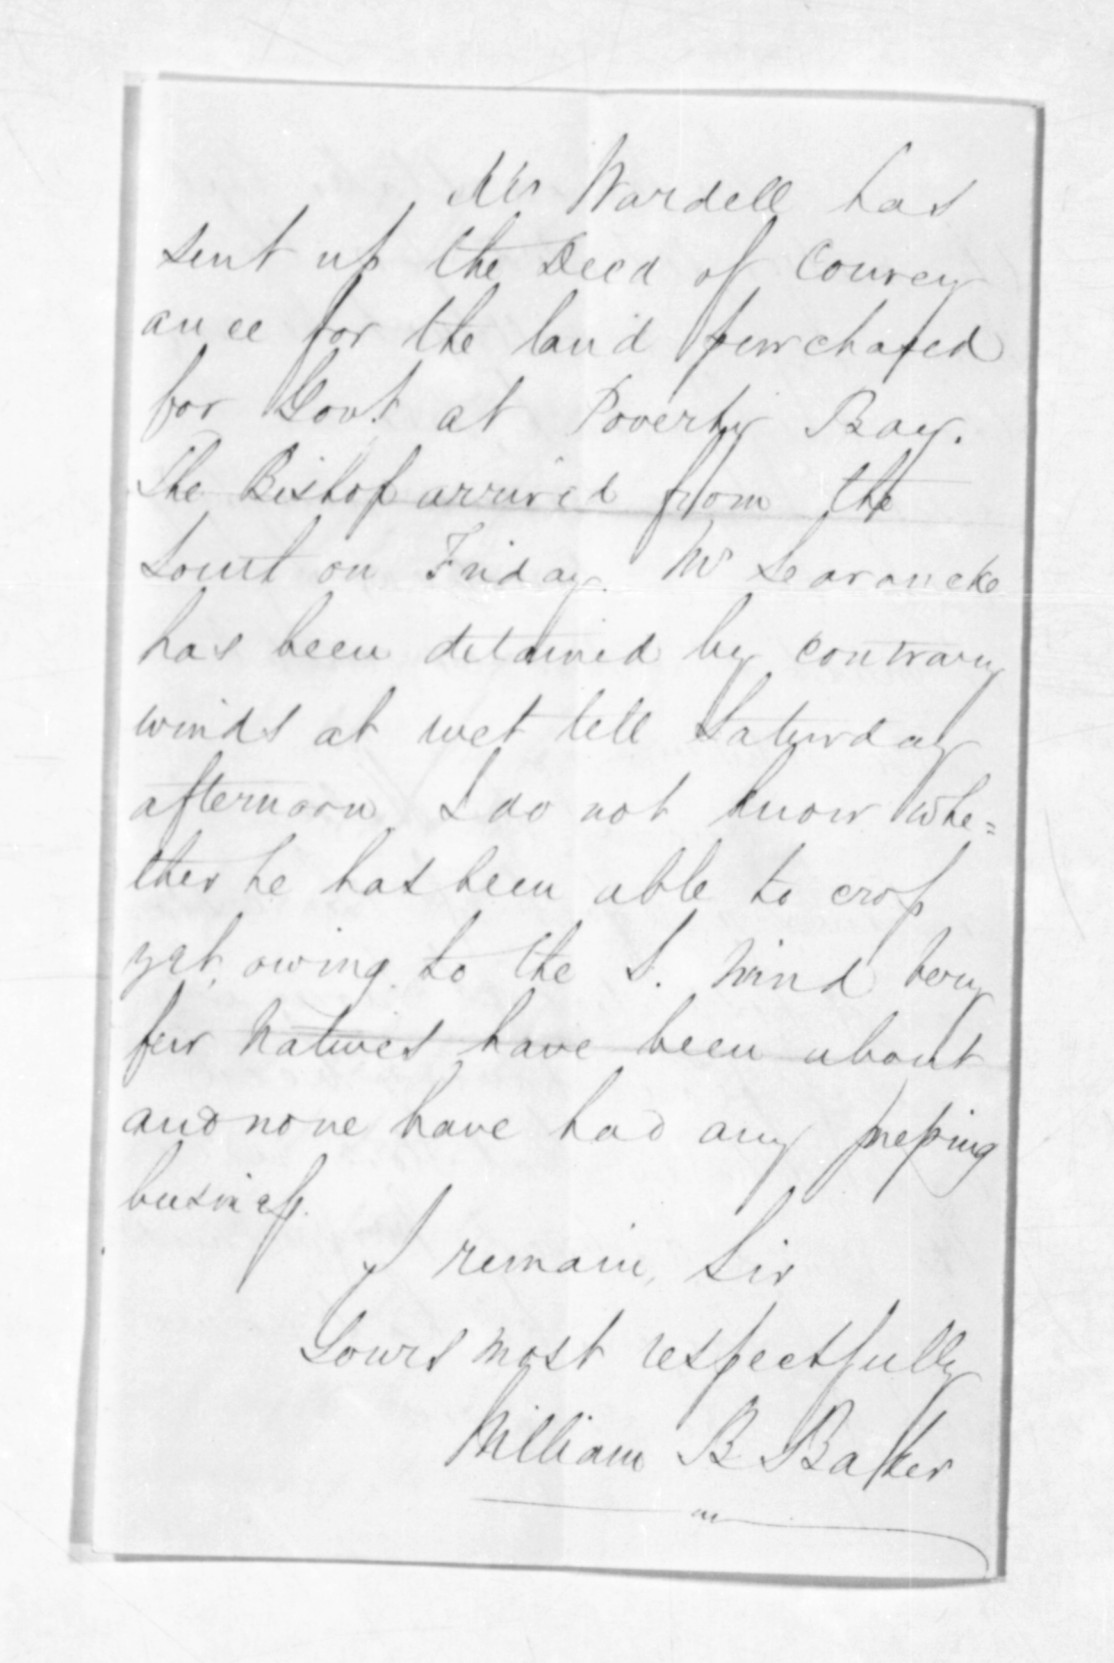 Mr Wardell has
sent up the Deed of Convey
ance for the land purchased
for Govt at Poverty Bay.
The Bishop arrived from the
South on Friday. Mr Searancke
has been detained by contrary
winds at till Saturday
afternoon I do not know whe=
ther he has been able to cross
yet, owing to the S. Wind very
few Natives have been about
and none have had any pressing
business.
I remain, Sir
Yours most respectfully
William B Baker